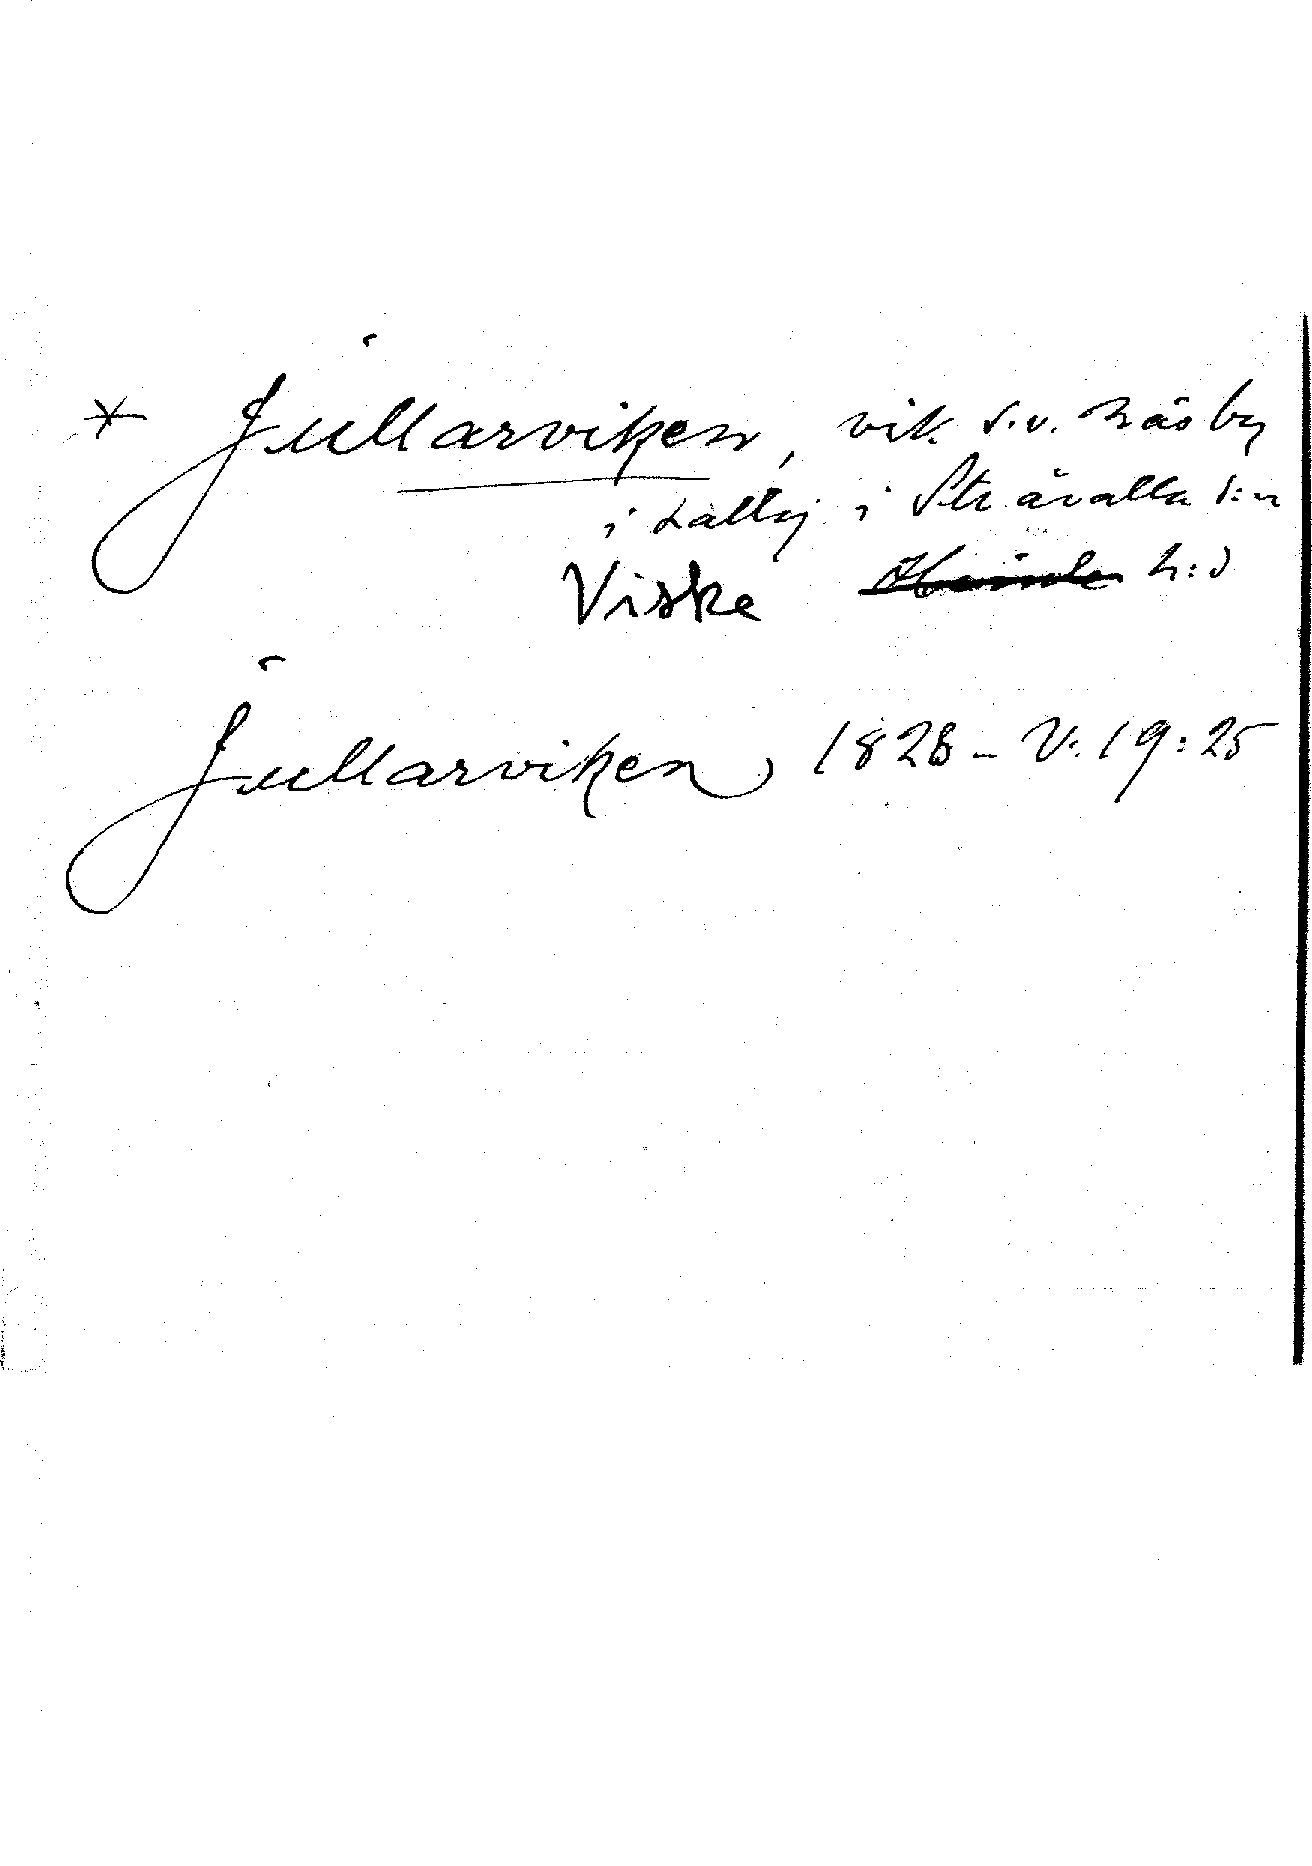 * Jullarviken, vik s.v. Näsby
i kattej i Stråvalla s:n
Viske h:d
Jullarviken 1828 – V: 19:25